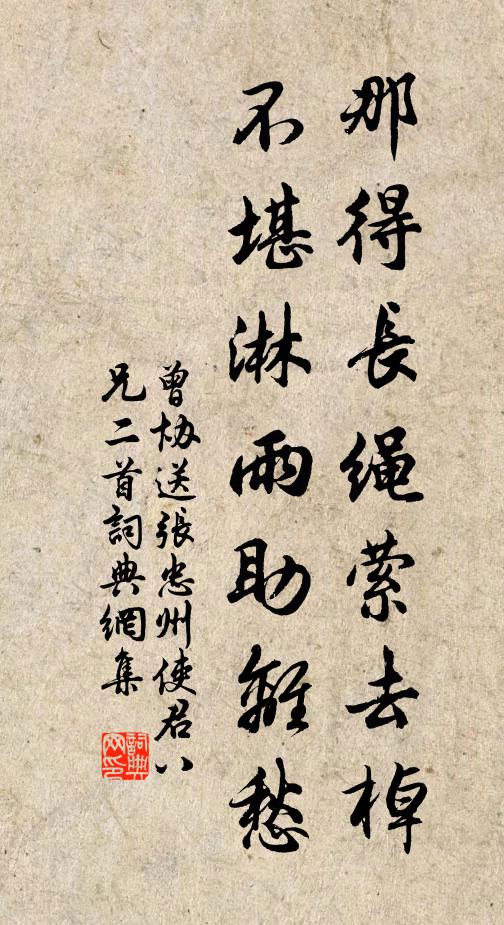 那得長绳萦去棹
不堪淋雨助離愁
曾协送張忠州使君八
兄二首詞典網集
詞典
网印